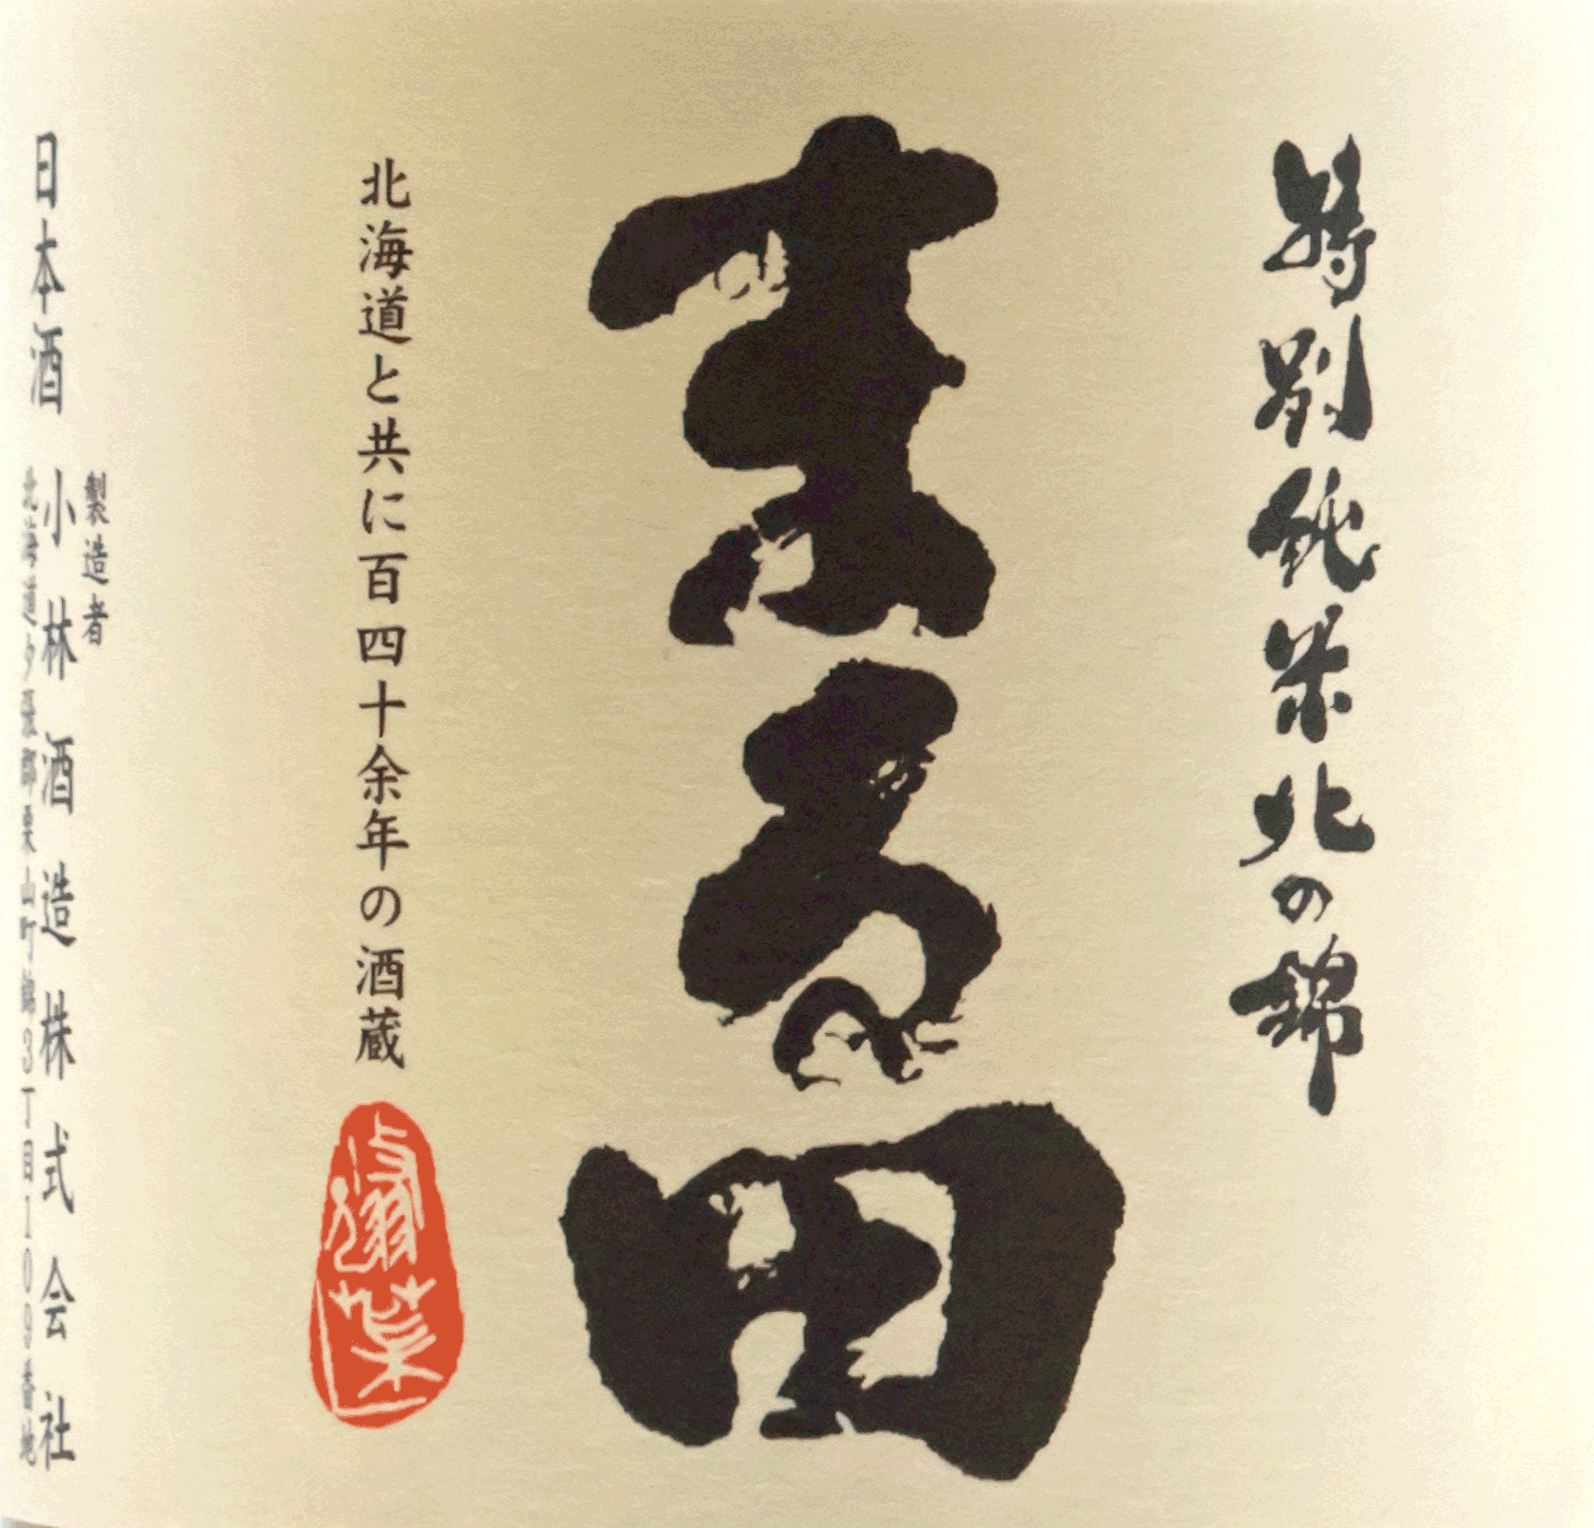 特別純米北の錦
まる田
北海道と共に百四十余年の酒蔵
製造者
日本酒 小林酒造株式会社
北海道夕張郡栗山町錦3丁目109番地